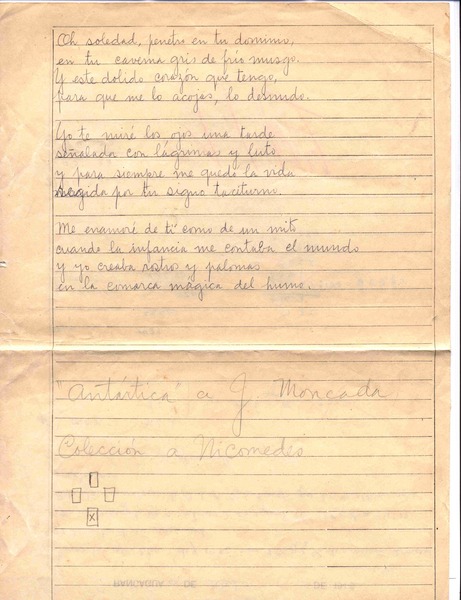 Oh soledad, penetro en tu dominio,
en tu caverna gris de frío musgo.
Y este dolido corazón que tengo,
para que me lo acojas, lo desnudo.
Yo te miré los ojos una tarde
señalada con lágrimas y luto
y para siempre me quedó la vida
regida por tu signo taciturno.
Me enamoré de ti como de un mito
cuando la infancia me contaba el mundo
y yo creaba rostros y palomas
en la comarca mágica del humo.
"Antártica" a J. Moncada
Colección a Nicomedes
X